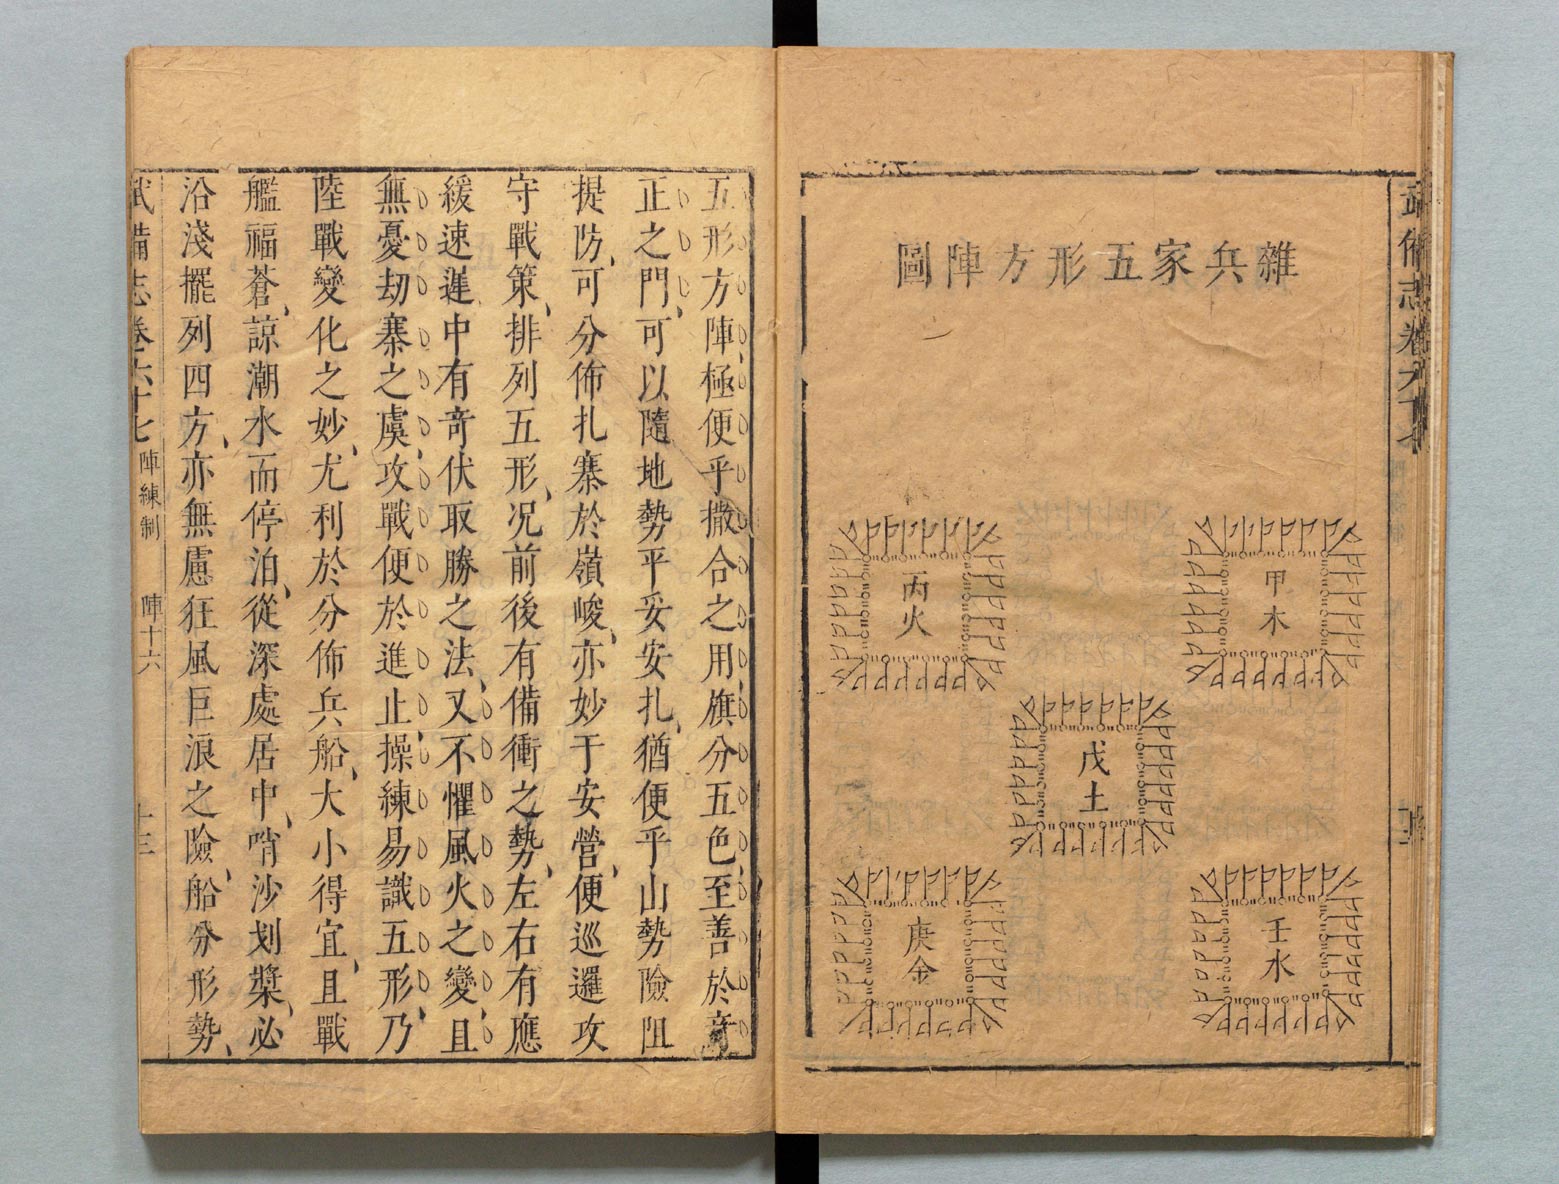 雜兵家五形方陣圖
甲木
丙火
戊土
壬水
庚金
五形方陣極便乎撒合之用旗分五色至善於竒
正之門可以隨地勢平妥安扎猶便乎山勢險阻
提防可分佈扎寨於嶺峻亦妙于安營便巡邏攻
守戰策排列五形况前後有備衝之勢左右有應
緩速遲中有竒伏取勝之法又不懼風火之變且
無憂劫寨之虞攻戰便於進止操練易識五形乃
陸戰變化之妙尤利於分佈兵船大小得宜且戰
艦福蒼諒潮水而停泊從深處居中哨沙划槳必
沿淺擺列四方亦無慮狂風巨浪之險船分形勢
武備志卷六十七 陣練制 陣十六 十三